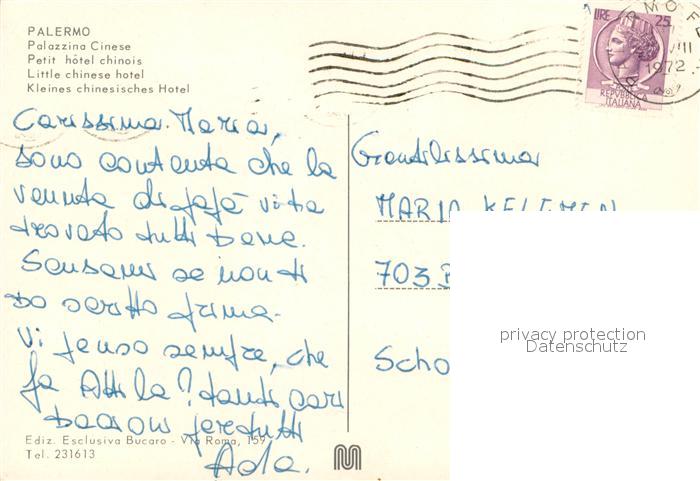 PALERMO
Palazzina Cinese
Petit hôtel chinois
Little chinese hotel
Kleines chinesisches Hotel
LIRE 25
REPVBBLICA
ITALIANA
1972
Carissima Maria,
sono contenta che la
venuta di fafà vi ha
trovato tutti bene.
Scusami se non ti
ho scritto prima.
Vi penso sempre, che
fa Attila? tanti cari
bacioni per tutti
Ada.
Gentilissima
MARIA
703
Scho
privacy protection
Datenschutz
Ediz. Esclusiva Bucaro - Via Roma, 159
Tel. 231613